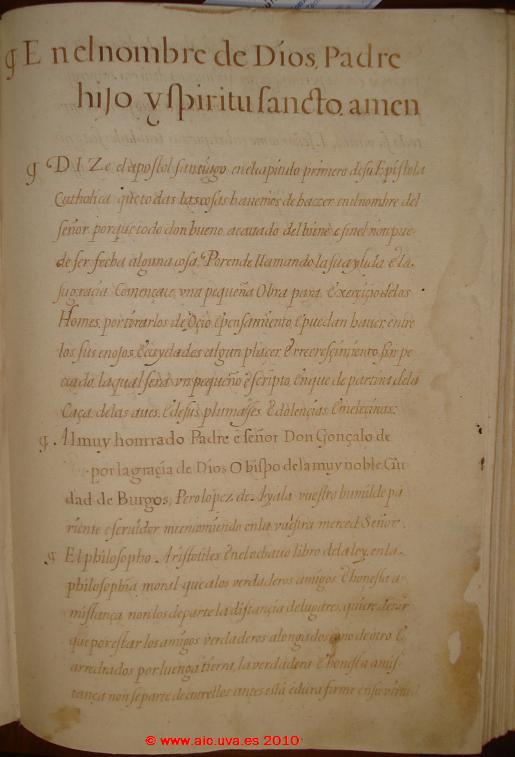 ¶ En el nombre de Dios, Padre
hijo y spiritu sancto. amen
¶ DIZe el apostol santiago. en el capitulo primero de su Epistola
Catholica que todas las cosas hauemos de hazer en el nombre del
señor. porque todo don bueno, acauado del uiene e sin el non pue-
de ser fecha alguna cosa, Por ende llamando la su ayuda E la.
su graçia Començare, vna pequeña Obra para. Exerçiçio de los
Homes, por tirarlos de Oçio E pensamiento, E puedan hauer, entre
los sus enojos, E cuydados algun placer. E recresçimiento, sin pe-
cado, la qual sera vn pequeño escripto, en que departira de la
Caça de las aues. E de sus plumages. E dolençias. E melecinas:
¶ Al muy honrrado Padre e señor Don Gonçalo de
por la graçia de Dios Obispo de la muy noble Ciu
dad de Burgos, Pero lopez de Ayala vuestro humilde pa
riente e seruidor me encomiendo en la vuestra merced Señor.
¶ El philosopho. Aristotiles E nel ochauo libro de la ley, en la.
philosophia moral que a los verdaderos amigos. E honesta a-
mistança non los departe la distançia de lugares, quiere dezir
que por estar los amigos verdaderos alongados vno de otro. E
arredrados por luenga tierra, la verdadera E honesta amis-
tança non se parte de entrellos antes esta e dura firme en su virtud
© www.aic.uva.es 2010